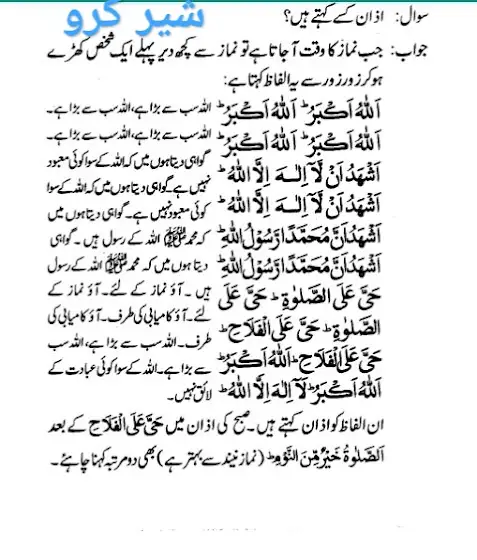 شیر کرو
سوال: اذان کسے کہتے ہیں؟
جواب: جب نماز کا وقت آجاتا ہے تو نماز سے کچھ دیر پہلے ایک شخص کھڑے
ہو کر زور زور سے یہ الفاظ کہتا ہے:
اَللّٰهُ اَكْبَرُ ط اَللّٰهُ اَكْبَرُ ط
اَللّٰهُ اَكْبَرُ ط اَللّٰهُ اَكْبَرُ ط
اَشْهَدُ اَنْ لَّآ اِلٰهَ اِلَّا اللّٰهُ ط
اَشْهَدُ اَنْ لَّآ اِلٰهَ اِلَّا اللّٰهُ ط
اَشْهَدُ اَنَّ مُحَمَّدًا رَّسُوْلُ اللّٰهِ ط
اَشْهَدُ اَنَّ مُحَمَّدًا رَّسُوْلُ اللّٰهِ ط
حَيَّ عَلَى الصَّلٰوةِ ط حَيَّ عَلَى
الصَّلٰوةِ ط حَيَّ عَلَى الْفَلَاحِ ط
حَيَّ عَلَى الْفَلَاحِ ط اَللّٰهُ اَكْبَرُ ط
اَللّٰهُ اَكْبَرُ ط لَآ اِلٰهَ اِلَّا اللّٰهُ ط
اللہ سب سے بڑا ہے، اللہ سب سے بڑا ہے۔
اللہ سب سے بڑا ہے، اللہ سب سے بڑا ہے۔
گواہی دیتا ہوں میں کہ اللہ کے سوا کوئی معبود
نہیں ہے گواہی دیتا ہوں میں کہ اللہ کے سوا
کوئی معبود نہیں ہے۔ گواہی دیتا ہوں میں
کہ محمد ﷺ اللہ کے رسول ہیں۔ گواہی
دیتا ہوں میں کہ محمد ﷺ اللہ کے رسول
ہیں۔ آؤ نماز کے لئے۔ آؤ نماز کے
لئے۔ آؤ کامیابی کی طرف۔ آؤ کامیابی کی
طرف۔ اللہ سب سے بڑا ہے، اللہ سب
سے بڑا ہے۔ اللہ کے سوا کوئی عبادت کے
لائق نہیں۔
ان الفاظ کو اذان کہتے ہیں۔ صبح کی اذان میں حَيَّ عَلَى الْفَلَاحِ کے بعد
اَلصَّلٰوةُ خَيْرٌ مِّنَ النَّوْمِ ط (نماز نیند سے بہتر ہے) بھی دو مرتبہ کہنا چاہئے۔